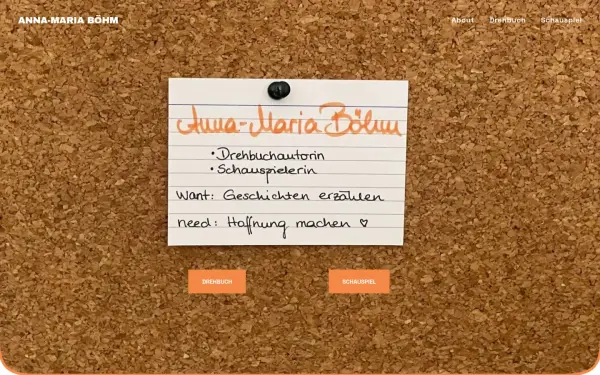 ANNA-MARIA BÖHM
About Drehbuch Schauspiel
Anna-Maria Böhm
• Drehbuchautorin
• Schauspielerin
Want: Geschichten erzählen
need: Hoffnung machen ♡
DREHBUCH
SCHAUSPIEL